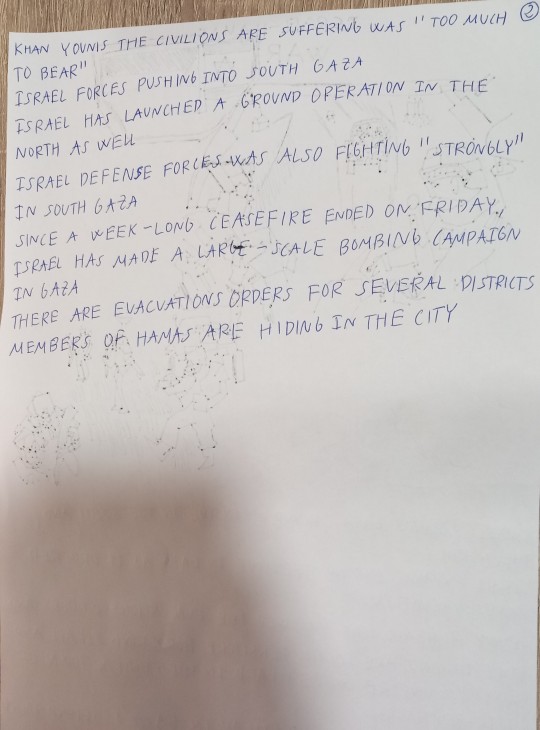 KHAN YOUNIS THE CIVILIONS ARE SUFFERING WAS "TOO MUCH 2
TO BEAR"
ISRAEL FORCES PUSHING INTO SOUTH GAZA
ISRAEL HAS LAUNCHED A GROUND OPERATION IN THE
NORTH AS WELL
ISRAEL DEFENSE FORCES WAS ALSO FIGHTING "STRONGLY"
IN SOUTH GAZA
SINCE A WEEK-LONG CEASEFIRE ENDED ON FRIDAY,
ISRAEL HAS MADE A LARGE-SCALE BOMBING CAMPAIGN
IN GAZA
THERE ARE EVACUATIONS ORDERS FOR SEVERAL DISTRICTS
MEMBERS OF HAMAS ARE HIDING IN THE CITY